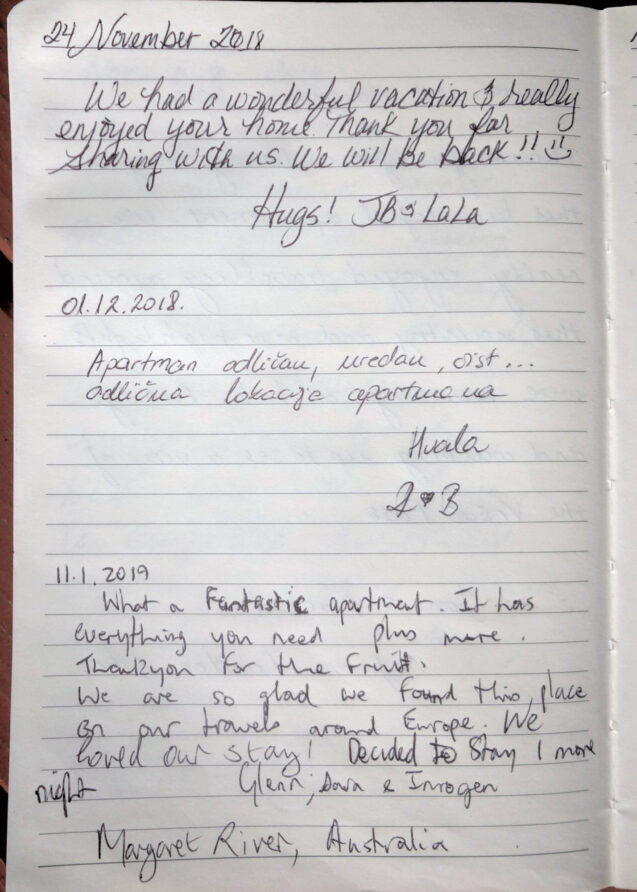 24 November 2018
We had a wonderful vacation & really
enjoyed your home. Thank you for
sharing with us. We will be back!!
Hugs! JB & LaLa
01.12.2018.
Apartman odličan, uredan, čist...
odlična lokacija apartmana
Hvala
B
11.1.2019
What a Fantastic apartment. It has
everything you need plus more.
Thankyou for the Fruit.
We are so glad we found this place
on our travels around Europe. We
loved our stay! Decided to Stay 1 more
night Glenn, Sara & Imogen
Margaret River, Australia